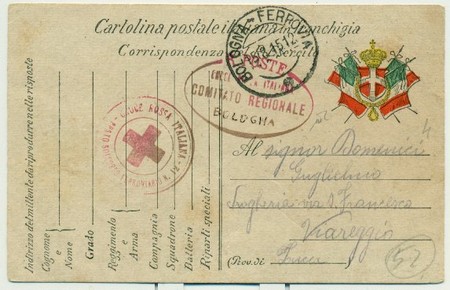 Cartolina postale italiana in franchigia
Corrispondenza del R. Esercito
BOLOGNA - FERROVIA
POSTE
CROCE ROSSA ITALIANA
COMITATO REGIONALE
BOLOGNA
CROCE ROSSA ITALIANA
Indirizzo del mittente da riprodurre nelle risposte
Cognome e Nome
Grado
Reggimento e Arma
Compagnia
Squadrone
Batteria
Riparti speciali
Al signor Domenici
Guglielmo
Drogheria via S. Francesco
Viareggio
(Prov. di Lucca
52